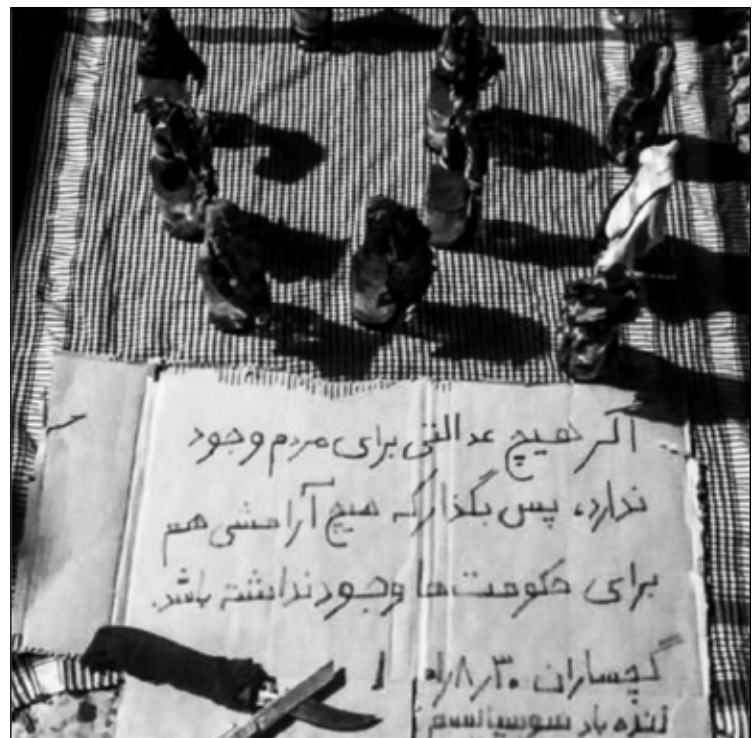 اگر هیچ عدالتی برای مردم وجود
ندارد، پس بگذار که هیچ آرامشی هم
برای حکومت‌ها وجود نداشته باشد.
گچساران ۳۰ر۸ر۰۱
زنده باد سوسیالیسم